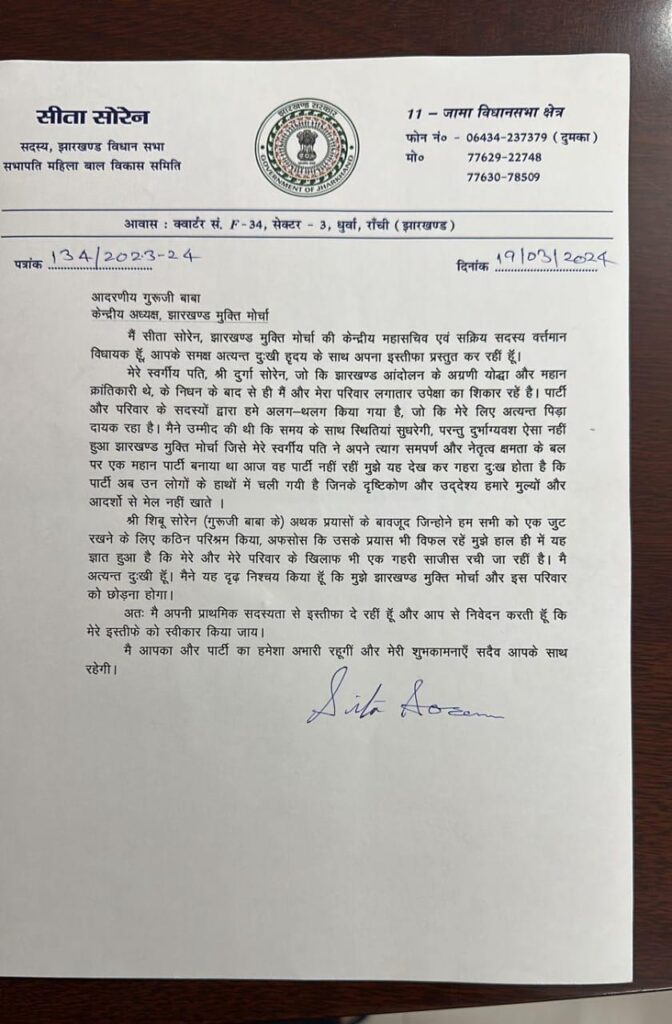 सीता सोरेन
सदस्य, झारखण्ड विधान सभा
सभापति महिला बाल विकास समिति
झारखण्ड सरकार
GOVERNMENT OF JHARKHAND
11 – जामा विधानसभा क्षेत्र
फोन नं० - 06434-237379 ( दुमका )
मो० 77629-22748
77630-78509
आवास : क्वार्टर सं. F-34, सेक्टर - 3, धुर्वा, राँची ( झारखण्ड )
पत्रांक 134/2023-24
दिनांक 19/03/2024
आदरणीय गुरूजी बाबा
केन्द्रीय अध्यक्ष, झारखण्ड मुक्ति मोर्चा
मैं सीता सोरेन, झारखण्ड मुक्ति मोर्चा की केन्द्रीय महासचिव एवं सक्रिय सदस्य वर्त्तमान
विधायक हूँ, आपके समक्ष अत्यन्त दुःखी हृदय के साथ अपना इस्तीफा प्रस्तुत कर रहीं हूँ।
मेरे स्वर्गीय पति, श्री दुर्गा सोरेन, जो कि झारखण्ड आंदोलन के अग्रणी योद्धा और महान
क्रांतिकारी थे, के निधन के बाद से ही मैं और मेरा परिवार लगातार उपेक्षा का शिकार रहें है। पार्टी
और परिवार के सदस्यों द्वारा हमे अलग-थलग किया गया है, जो कि मेरे लिए अत्यन्त पिड़ा
दायक रहा है। मैने उम्मीद की थी कि समय के साथ स्थितियां सुधरेगी, परन्तु दुर्भाग्यवश ऐसा नहीं
हुआ झारखण्ड मुक्ति मोर्चा जिसे मेरे स्वर्गीय पति ने अपने त्याग समपर्ण और नेतृत्व क्षमता के बल
पर एक महान पार्टी बनाया था आज वह पार्टी नहीं रहीं मुझे यह देख कर गहरा दुःख होता है कि
पार्टी अब उन लोगों के हाथों में चली गयी है जिनके दृष्टिकोण और उद्देश्य हमारे मुल्यों और
आदर्शो से मेल नहीं खाते ।
श्री शिबू सोरेन (गुरूजी बाबा के) अथक प्रयासों के बावजूद जिन्होने हम सभी को एक जुट
रखने के लिए कठिन परिश्रम किया, अफसोस कि उसके प्रयास भी विफल रहें मुझे हाल ही में यह
ज्ञात हुआ है कि मेरे और मेरे परिवार के खिलाफ भी एक गहरी साजीस रची जा रहीं है। मै
अत्यन्त दुःखी हूँ। मैने यह दृढ़ निश्चय किया हूँ कि मुझे झारखण्ड मुक्ति मोर्चा और इस परिवार
को छोड़ना होगा।
अतः मै अपनी प्राथमिक सदस्यता से इस्तीफा दे रहीं हूँ और आप से निवेदन करती हूँ कि
मेरे इस्तीफे को स्वीकार किया जाय।
मै आपका और पार्टी का हमेशा अभारी रहूगीं और मेरी शुभकामनाएँ सदैव आपके साथ
रहेगी।
Sita Soren